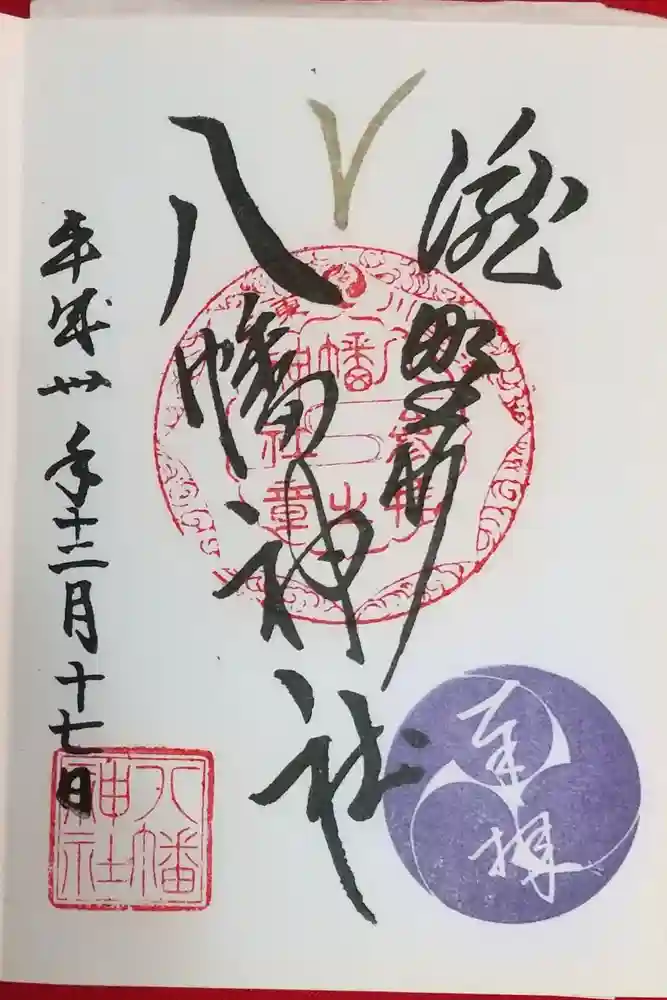 奉拝
瀧野川
八幡神社
平成卅年十二月十七日
八幡
神社